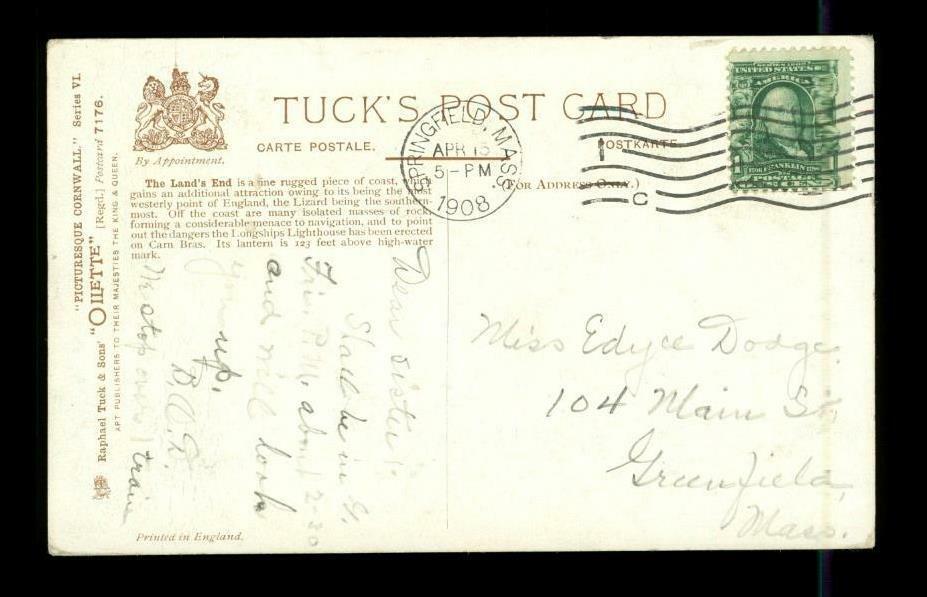 "PICTURESQUE CORNWALL." Series VI.
Raphael Tuck & Sons' "OILETTE" [Regd.] Postcard 7176.
ART PUBLISHERS TO THEIR MAJESTIES THE KING & QUEEN.
By Appointment.
TUCK'S POST CARD
CARTE POSTALE.
POSTKARTE
(FOR ADDRESS ONLY.)
SPRINGFIELD, MASS.
APR 15
5-PM
1908
C
UNITED STATES
AMERICA
The Land's End is a fine rugged piece of coast, which
gains an additional attraction owing to its being the most
westerly point of England, the Lizard being the southern-
most. Off the coast are many isolated masses of rock
forming a considerable menace to navigation, and to point
out the dangers the Longships Lighthouse has been erected
on Carn Bras. Its lantern is 123 feet above high-water
mark.
Dear sister:
Shall be in G.
Fri. P.M. about 2-30
and will look
you up.
We stop over 1 train
Miss Edyce Dodge.
104 Main St.
Greenfield,
Mass.
Printed in England.